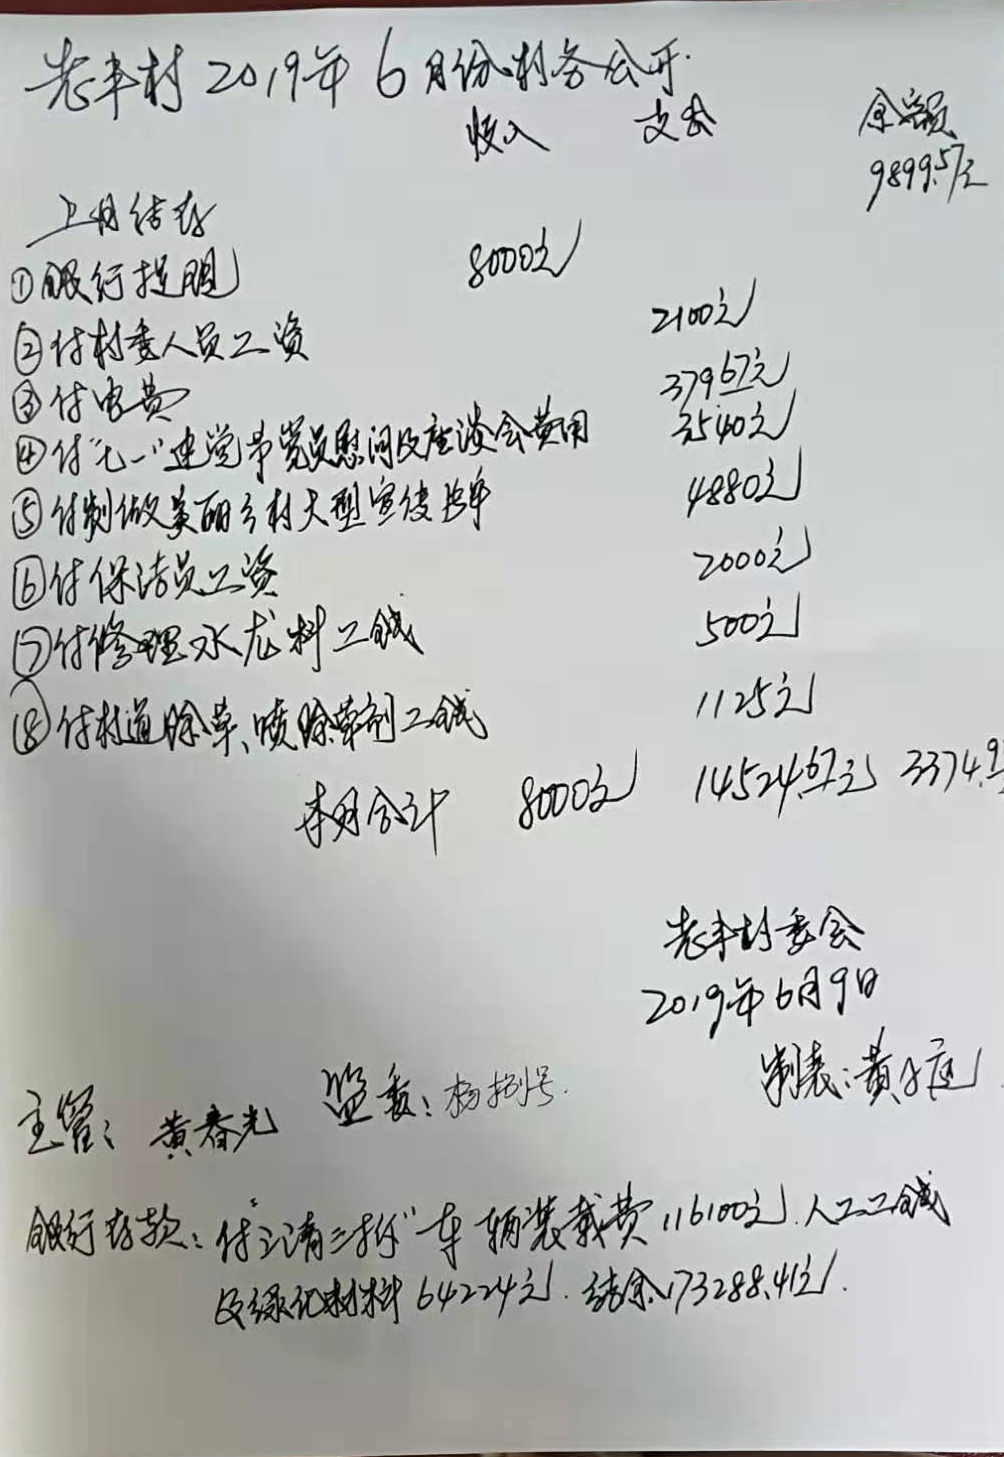 老丰村2019年6月份村务公开.
收入 支出 余额
9899.57元
上月结存
①银行提现 8000元
②付村委人员工资 2100元
③付电费 379.67元
④付"七一"建党节党员慰问及座谈会费用 3540元
⑤付制做美丽乡村大型宣传 4880元
⑥付保洁员工资 2000元
⑦付修理水龙料工钱 500元
⑧付村道除草、喷除草剂工钱 1125元
本月合计 8000元 14524.67元 3374.9
老丰村委会
2019年6月9日
制表:黄
主管:黄春光 监委:杨
银行存款:付"三清三拆"车辆装载费116100元.人工工钱
及绿化材料64224元.结余173288.41元.